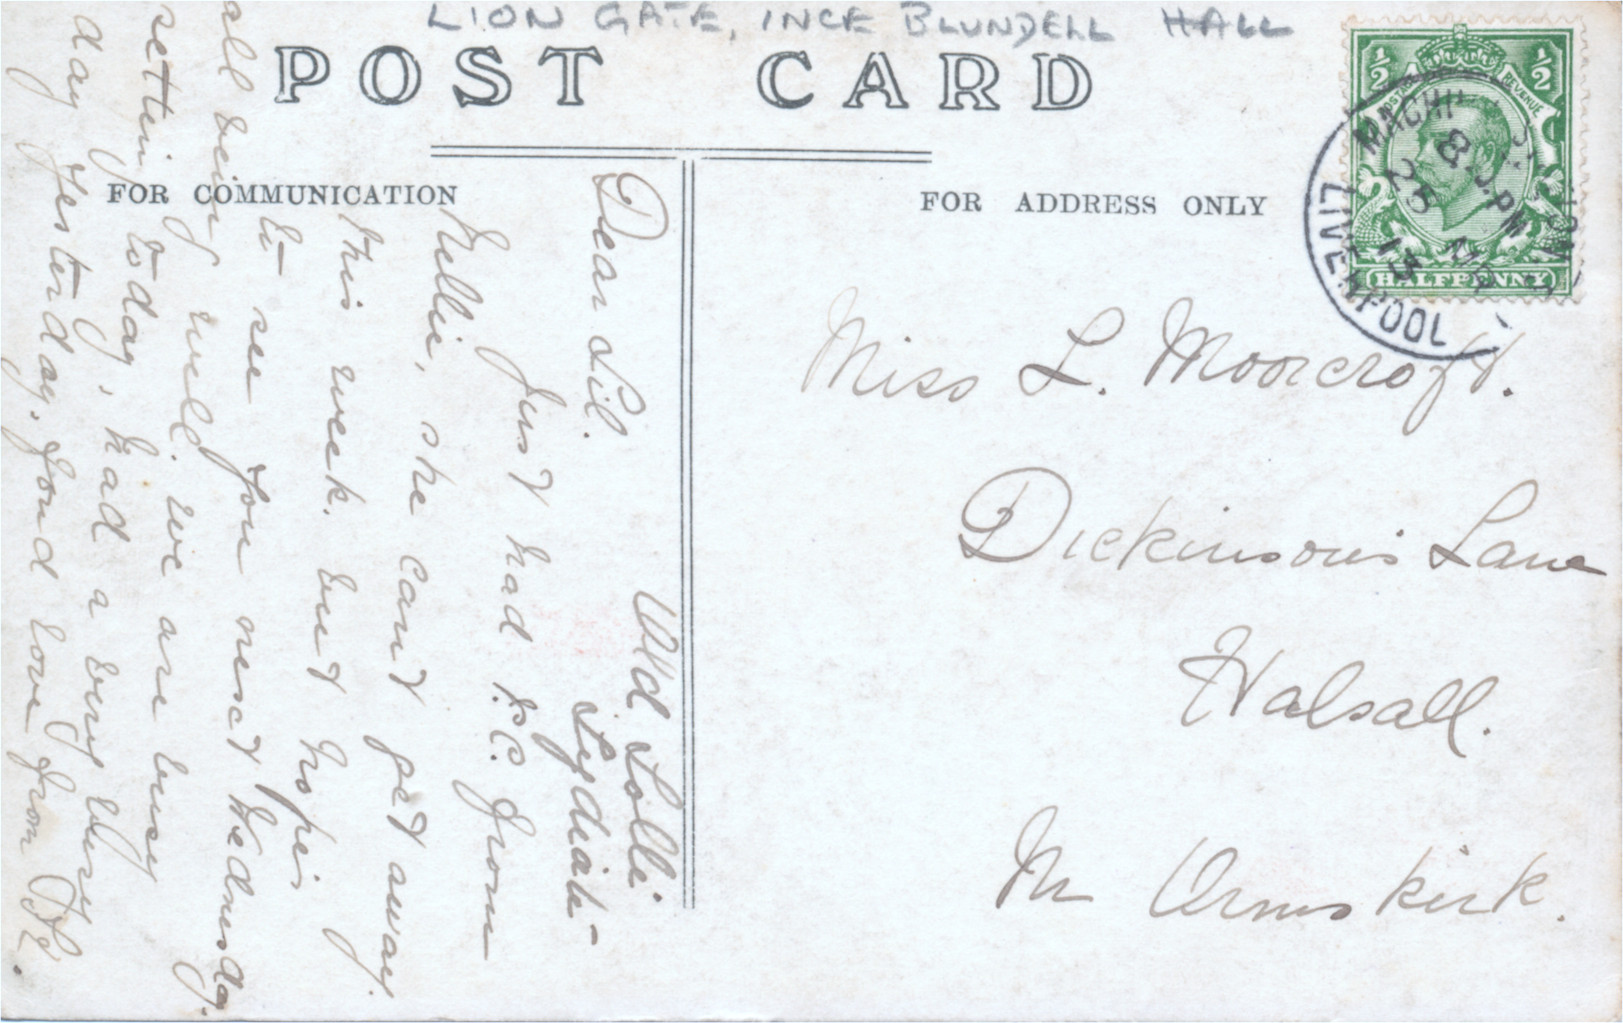 LION GATE, INCE BLUNDELL HALL
POST CARD
FOR COMMUNICATION
FOR ADDRESS ONLY
½ ½
POSTAGE REVENUE
HALFPENNY
LIVERPOOL
8. PM
25
13
Lydiate
Dear Lil.
Just had P.C. from
Nellie, she can't get away
this week. but hopeis
to see you next Wednesday.
all being well. we are busy
settein today, had a very busy
day yesterday. fond love from
Miss L. Moorcroft.
Dickinson's Lane
Halsall.
Nr Ormskirk.